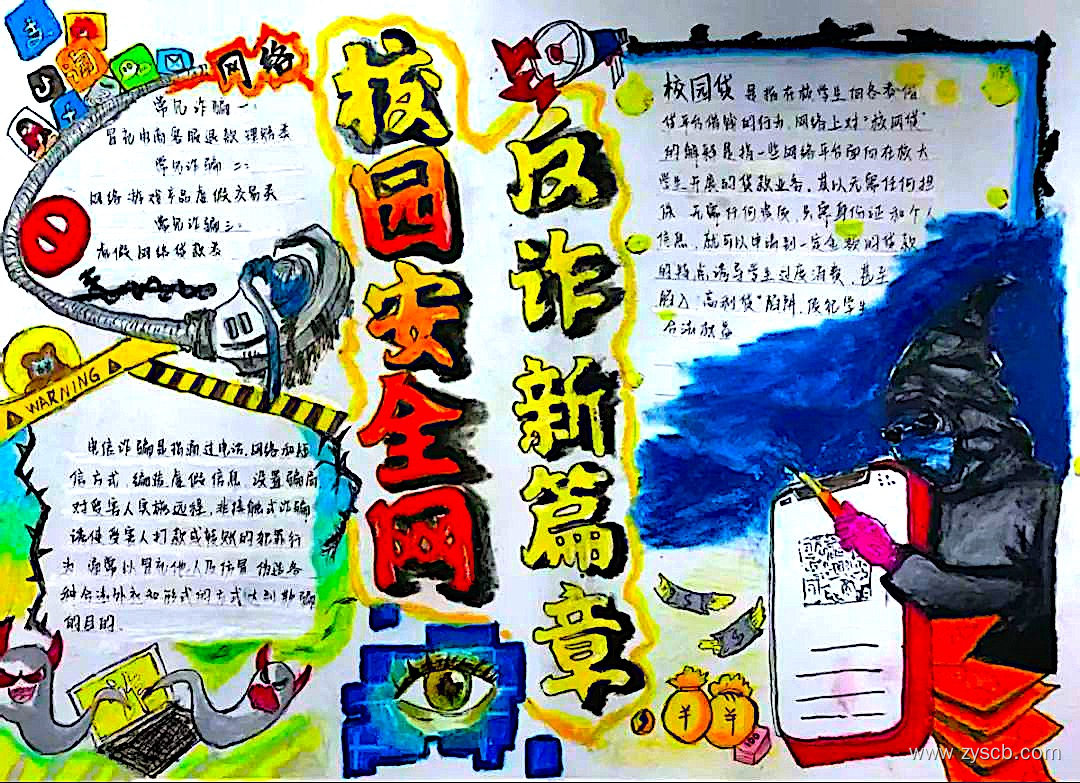 网络
校园安全网
反诈新篇章
常见诈骗一:
冒充电商客服退款 理赔类
常见诈骗二:
网络游戏产品虚假交易类
常见诈骗三:
虚假网络贷款类
WARNING
电信诈骗是指通过电话.网络和短
信方式.编造虚假信息.设置骗局
对受害人实施远程.非接触式诈骗
诱使受害人打款或转账的犯罪行
为 通常以冒充他人及仿冒 伪造各
种合法外衣和形式的方式达到欺骗
的目的.
校园贷 是指在校学生向各类借
贷平台借钱的行为.网络上对"校园贷"
的解释是指一些网络平台面向在校大
学生开展的贷款业务.其以无需任何担
保.无需任何资质.只需身份证和个人
信息.就可以申请到一定金额的贷款
的特点诱导学生过度消费.甚至
陷入"高利贷"陷阱.侵犯学生
合法权益
¥
¥
www.zyscb.com